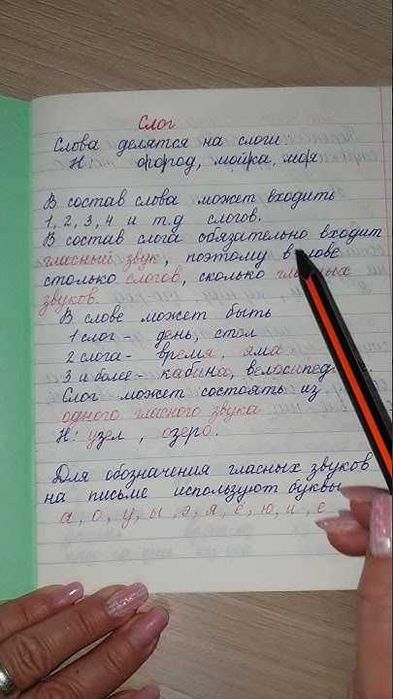 Слог
Слова делятся на слоги
Н огород, мойка, моя
В состав слова может входить
1, 2, 3, 4 и т.д слогов.
В состав слога обязательно входит
гласный звук, поэтому в слове
столько слогов, сколько гласных
звуков.
В слове может быть
1 слог - день, стол
2 слога - время, яма
3 и более - кабина, велосипед
Слог может состоять из
одного гласного звука
Н: узел, озеро.
Для обозначения гласных звуков
на письме используют буквы
а, о, у, ы, э, я, ё, ю, и, е